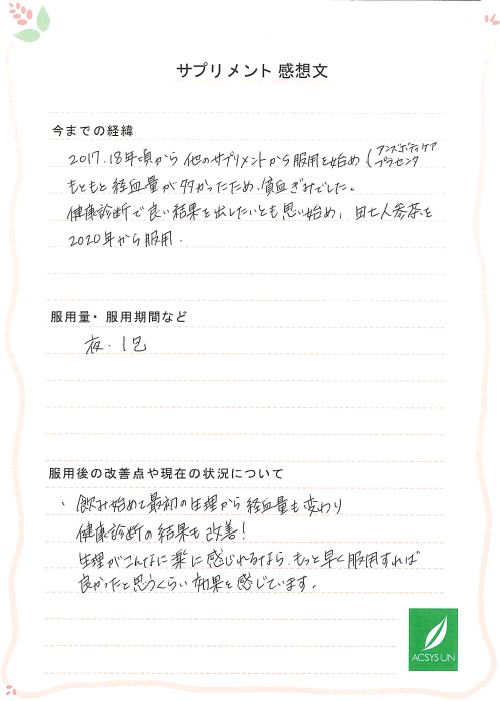 サプリメント 感想文
今までの経緯
2017.18年頃から 他のサプリメントから服用を始め (アンズボディケア
プラセンタ
もともと経血量が多かったため、貧血ぎみでした。
健康診断で良い結果を出したいとも思い始め、田七人参茶を
2020年から服用.
服用量・服用期間など
夜. 1包
服用後の改善点や現在の状況について
・飲み始めて最初の生理から経血量も変わり
健康診断の結果も改善!
生理がこんなに楽に感じれるなら、もっと早く服用すれば
良かったと思うくらい効果を感じています。
ACSYS UN